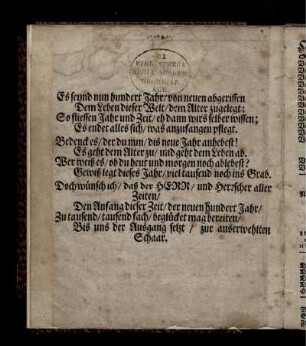 EX
BIBLIOTHECA
REGIA ACADEM.
GEORGIAE
AUG.
Es seynd nun hundert Jahr / von neuen abgerissen
Dem Leben dieser Welt / dem Alter zugelegt:
So fliessen Jahr und Zeit / eh dann wirs selber wissen;
Es endet alles sich / was anzufangen pflegt.
Bedenck es / der du nun / dis neue Jahr anhebest!
Es geht dem Alter zu / und geht dem Leben ab.
Wer weiß es / ob du heut und morgen noch ablebest?
Gewiß legt dieses Jahr / viel tausend noch ins Grab.
Doch wünsch ich / daß der HERR / und Herrscher aller
Zeiten /
Den Anfang dieser Zeit / der neuen hundert Jahr /
Zu tausend / tausend fach / beglücket mag bereiten /
Bis uns der Ausgang setzt / zur auserwehlten
Schaar.